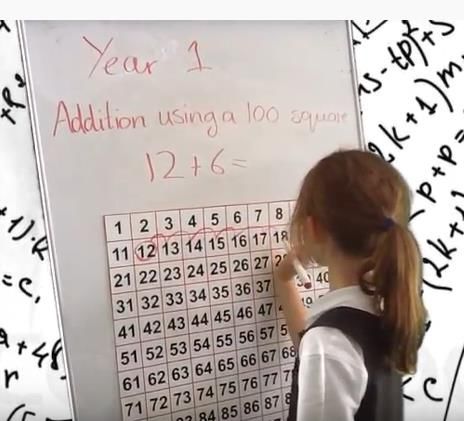 Year 1
Addition using a 100 square
12+6=
1 2 3 4 5 6 7 8
11 12 13 14 15 16 17 18
21 22 23 24 25 26 27
31 32 33 34 35 36 37 40
41 42 43 44 45 46 47
51 52 53 54 55 56 57
61 62 63 64 65 66 67 68
71 72 73 74 75 76 77
84 85 86 87
2k+1)m
p+p=
(2k+
=c,